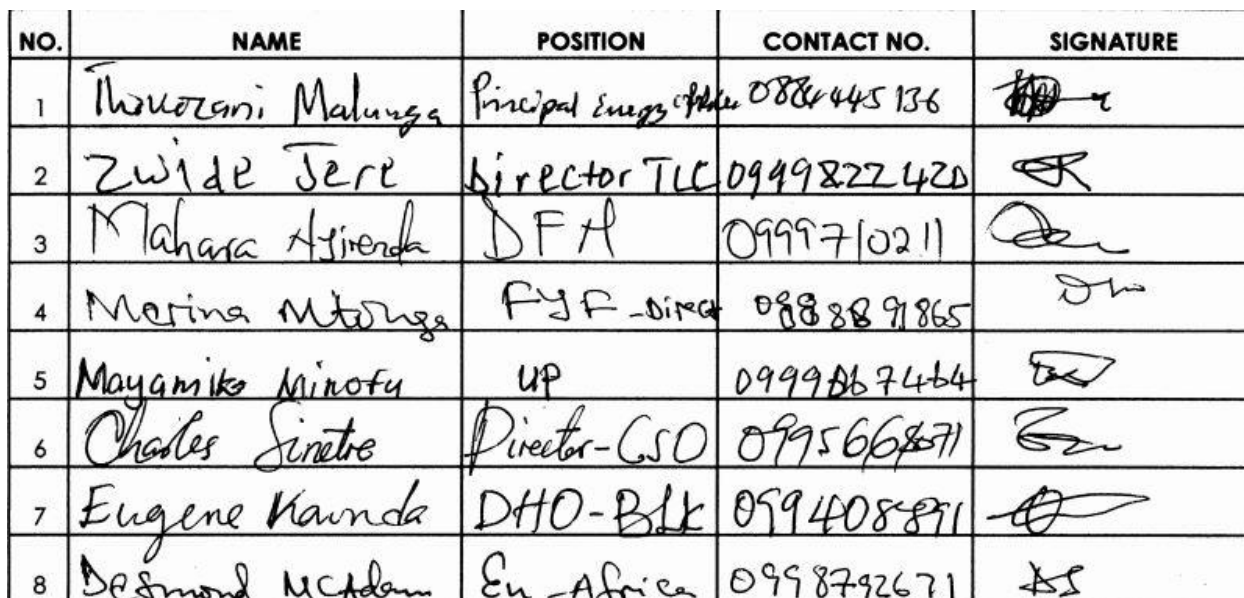 NO. NAME POSITION CONTACT NO. SIGNATURE
1 Thokozani Malunga Principal Energy Officer 0884445136
2 Zwide Jere Director TLC 0999822420
3 Mahara Nyirenda DFH 0999710211
4 Merina Mtonga FYF - Direct 0888891865
5 Mayamiko Minofu UP 0999867464
6 Charles Sinetre Director - CSO 0995668071
7 Eugene Kaunda DHO - BLK 0994088891
8 Desmond McAdam En - Africa 0998792671